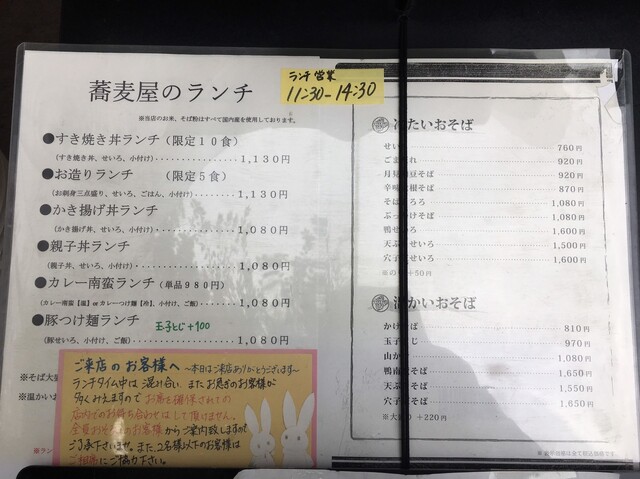 蕎麦屋のランチ
ランチ営業
11:30-14:30
※当店のお米、そば粉はすべて国内産を使用しております。
●すき焼き丼ランチ(限定10食)
(すき焼き丼、せいろ、小付け)‥‥‥‥1,130円
●お造りランチ (限定5食)
(お刺身三点盛り、せいろ、ごはん、小付け)‥‥1,130円
●かき揚げ丼ランチ
(かき揚げ丼、せいろ、小付け)‥‥‥‥1,080円
●親子丼ランチ
(親子丼、せいろ、小付け)‥‥‥‥1,080円
●カレー南蛮ランチ(単品980円)
(カレー南蛮【温】orカレーつけ麺【冷】、小付け、ご飯)‥‥1,080円
●豚つけ麺ランチ 玉子とじ+100
(豚せいろ、小付け、ご飯)‥‥‥‥1,080円
※そば大盛
※温かいお
※ラン
ご来店のお客様へ ~本日はご来店ありがとうございます~
ランチタイム中は混み合い、またお急ぎのお客様が
多くみえますので お席を確保されての
店内でのお待ち合わせはして頂けません。
全員お揃いのお客様からご案内致しますので
ご了承下さいませ。また、2名様以下のお客様は
ご相席にご協力下さい。
冷たいおそば
せい 760円
ごま れ 920円
月見 豆そば 920円
辛味 根そば 870円
そば ろろ 1,080円
ぶっ けそば 1,080円
鴨せ ろ 1,600円
天ぷ せいろ 1,500円
穴子 いろ 1,600円
※の +50円
温かいおそば
かけ ば 810円
玉子 じ 970円
山か 1,080円
鴨南 そば 1,650円
天ぷ そば 1,550円
穴子 そば 1,650円
※大 り +220円